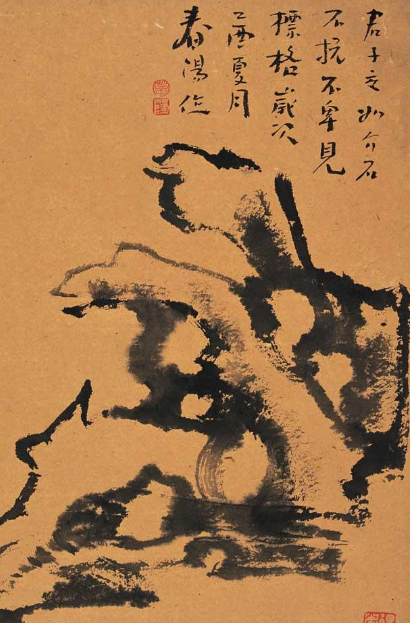 君子交如介石
不抗不卑見
標格歲次
乙酉夏月
春湯作